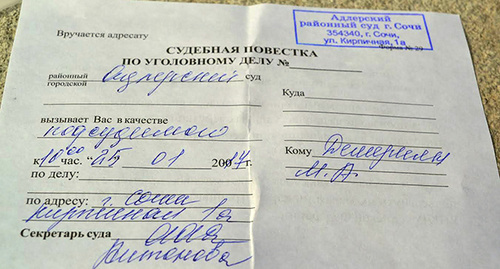 Вручается адресату
Адлерский
районный суд г. Сочи
354340, г. Сочи,
ул. Кирпичная, 1а
СУДЕБНАЯ ПОВЕСТКА
ПО УГОЛОВНОМУ ДЕЛУ №
районный
городской
Адлерский суд
Куда
вызывает Вас в качестве
подсудимого
к 10 00 час. "25 01 2017г.
Кому
М. А.
по делу:
по адресу: г. Сочи
кирпичная 1а
Секретарь суда